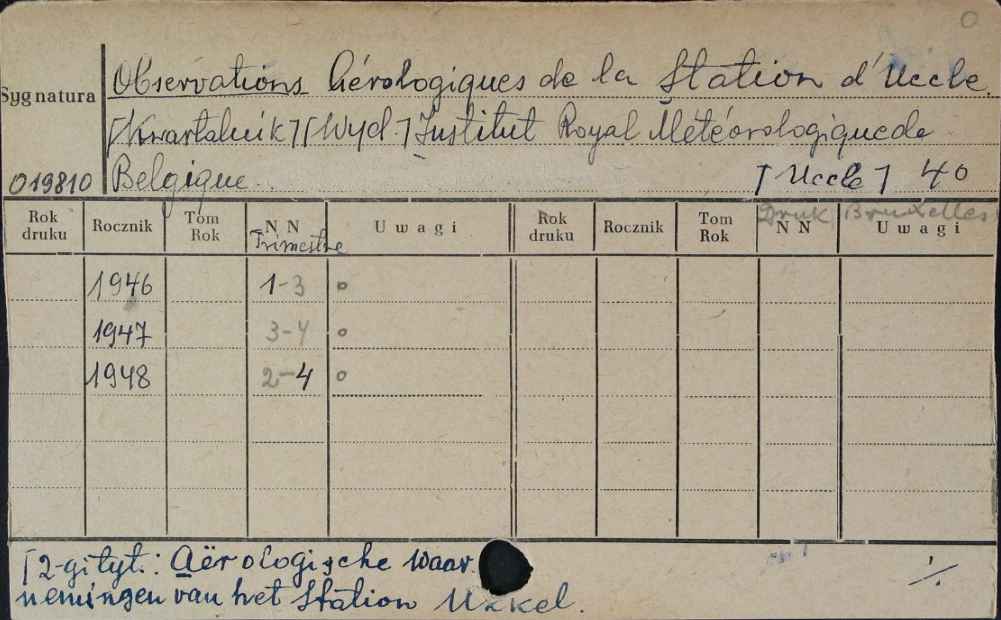 O
Observations Aérologiques de la Station d'Uccle.
Sygnatura
[Kwartalnik] [Wyd.] Institut Royal Météorologique de
019810 Belgique. [Uccle] 4°
Druk Bruxelles
Rok druku Rocznik Tom Rok NN Uwagi Rok druku Rocznik Tom Rok NN Uwagi
Trimestre
1946 1-3 o
1947 3-4 o
1948 2-4 o
[2-gi tyt.: Aërologische waar
nemingen van het Station Ukkel.